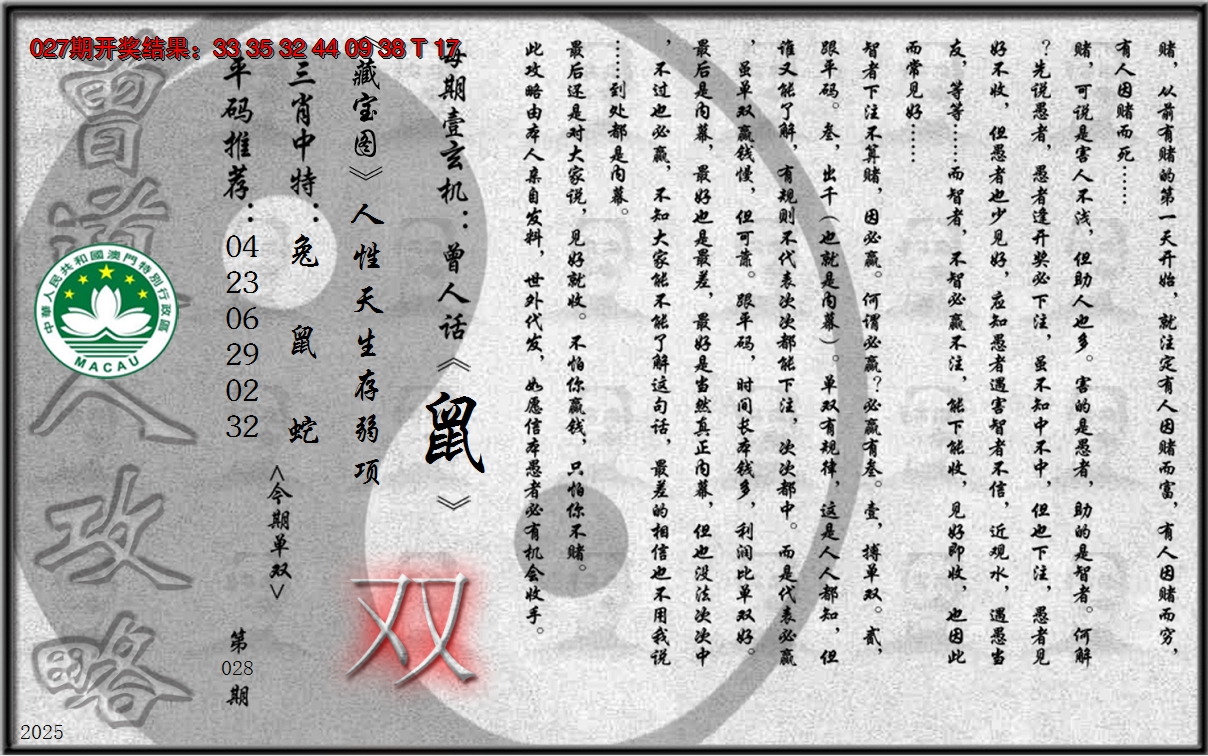 027期开奖结果：33 35 32 44 09 38 T 17
赌，从前有赌的第一天开始，就注定有人因赌而富，有人因赌而穷，
有人因赌而死……
赌，可说是害人不浅，但助人也多。害的是愚者，助的是智者。何解
？先说愚者，愚者逢开奖必下注，虽不知中不中，但也下注，愚者见
好不收，但愚者也少见好，应知愚者遇害智者不信，近观水，遇愚当
友，等等……而智者，不智必赢不注，能下能收，见好即收，也因此
而常见好……
智者下注不算赌，因必赢。何谓必赢？必赢有叁。壹，搏单双。贰，
跟平码。叁，出千（也就是内幕）。单双有规律，这是人人都知，但
谁又能了解，有规则不代表次次都能下注，次次都中。而是代表必赢
，虽单双赢钱慢，但可靠。跟平码，时间长本钱多，利润比单双好。
最后是内幕，最好也是最差，最好是当然真正内幕，但也没法次次中
，不过也必赢，不知大家能不能了解这句话，最差的相信也不用我说
……到处都是内幕。
最后还是对大家说，见好就收。不怕你赢钱，只怕你不赌。
此攻略由本人亲自发料，世外代发，如愿信本愚者必有机会收手。
每期壹玄机：曾人话《鼠》
《藏宝图》人性天生存弱项
双
三肖中特：兔 鼠 蛇
<今期单双>
平码推荐：04 23 06 29 02 32
第028期
曾道人攻略
中華人民共和國澳門特別行政區
MACAU
2025